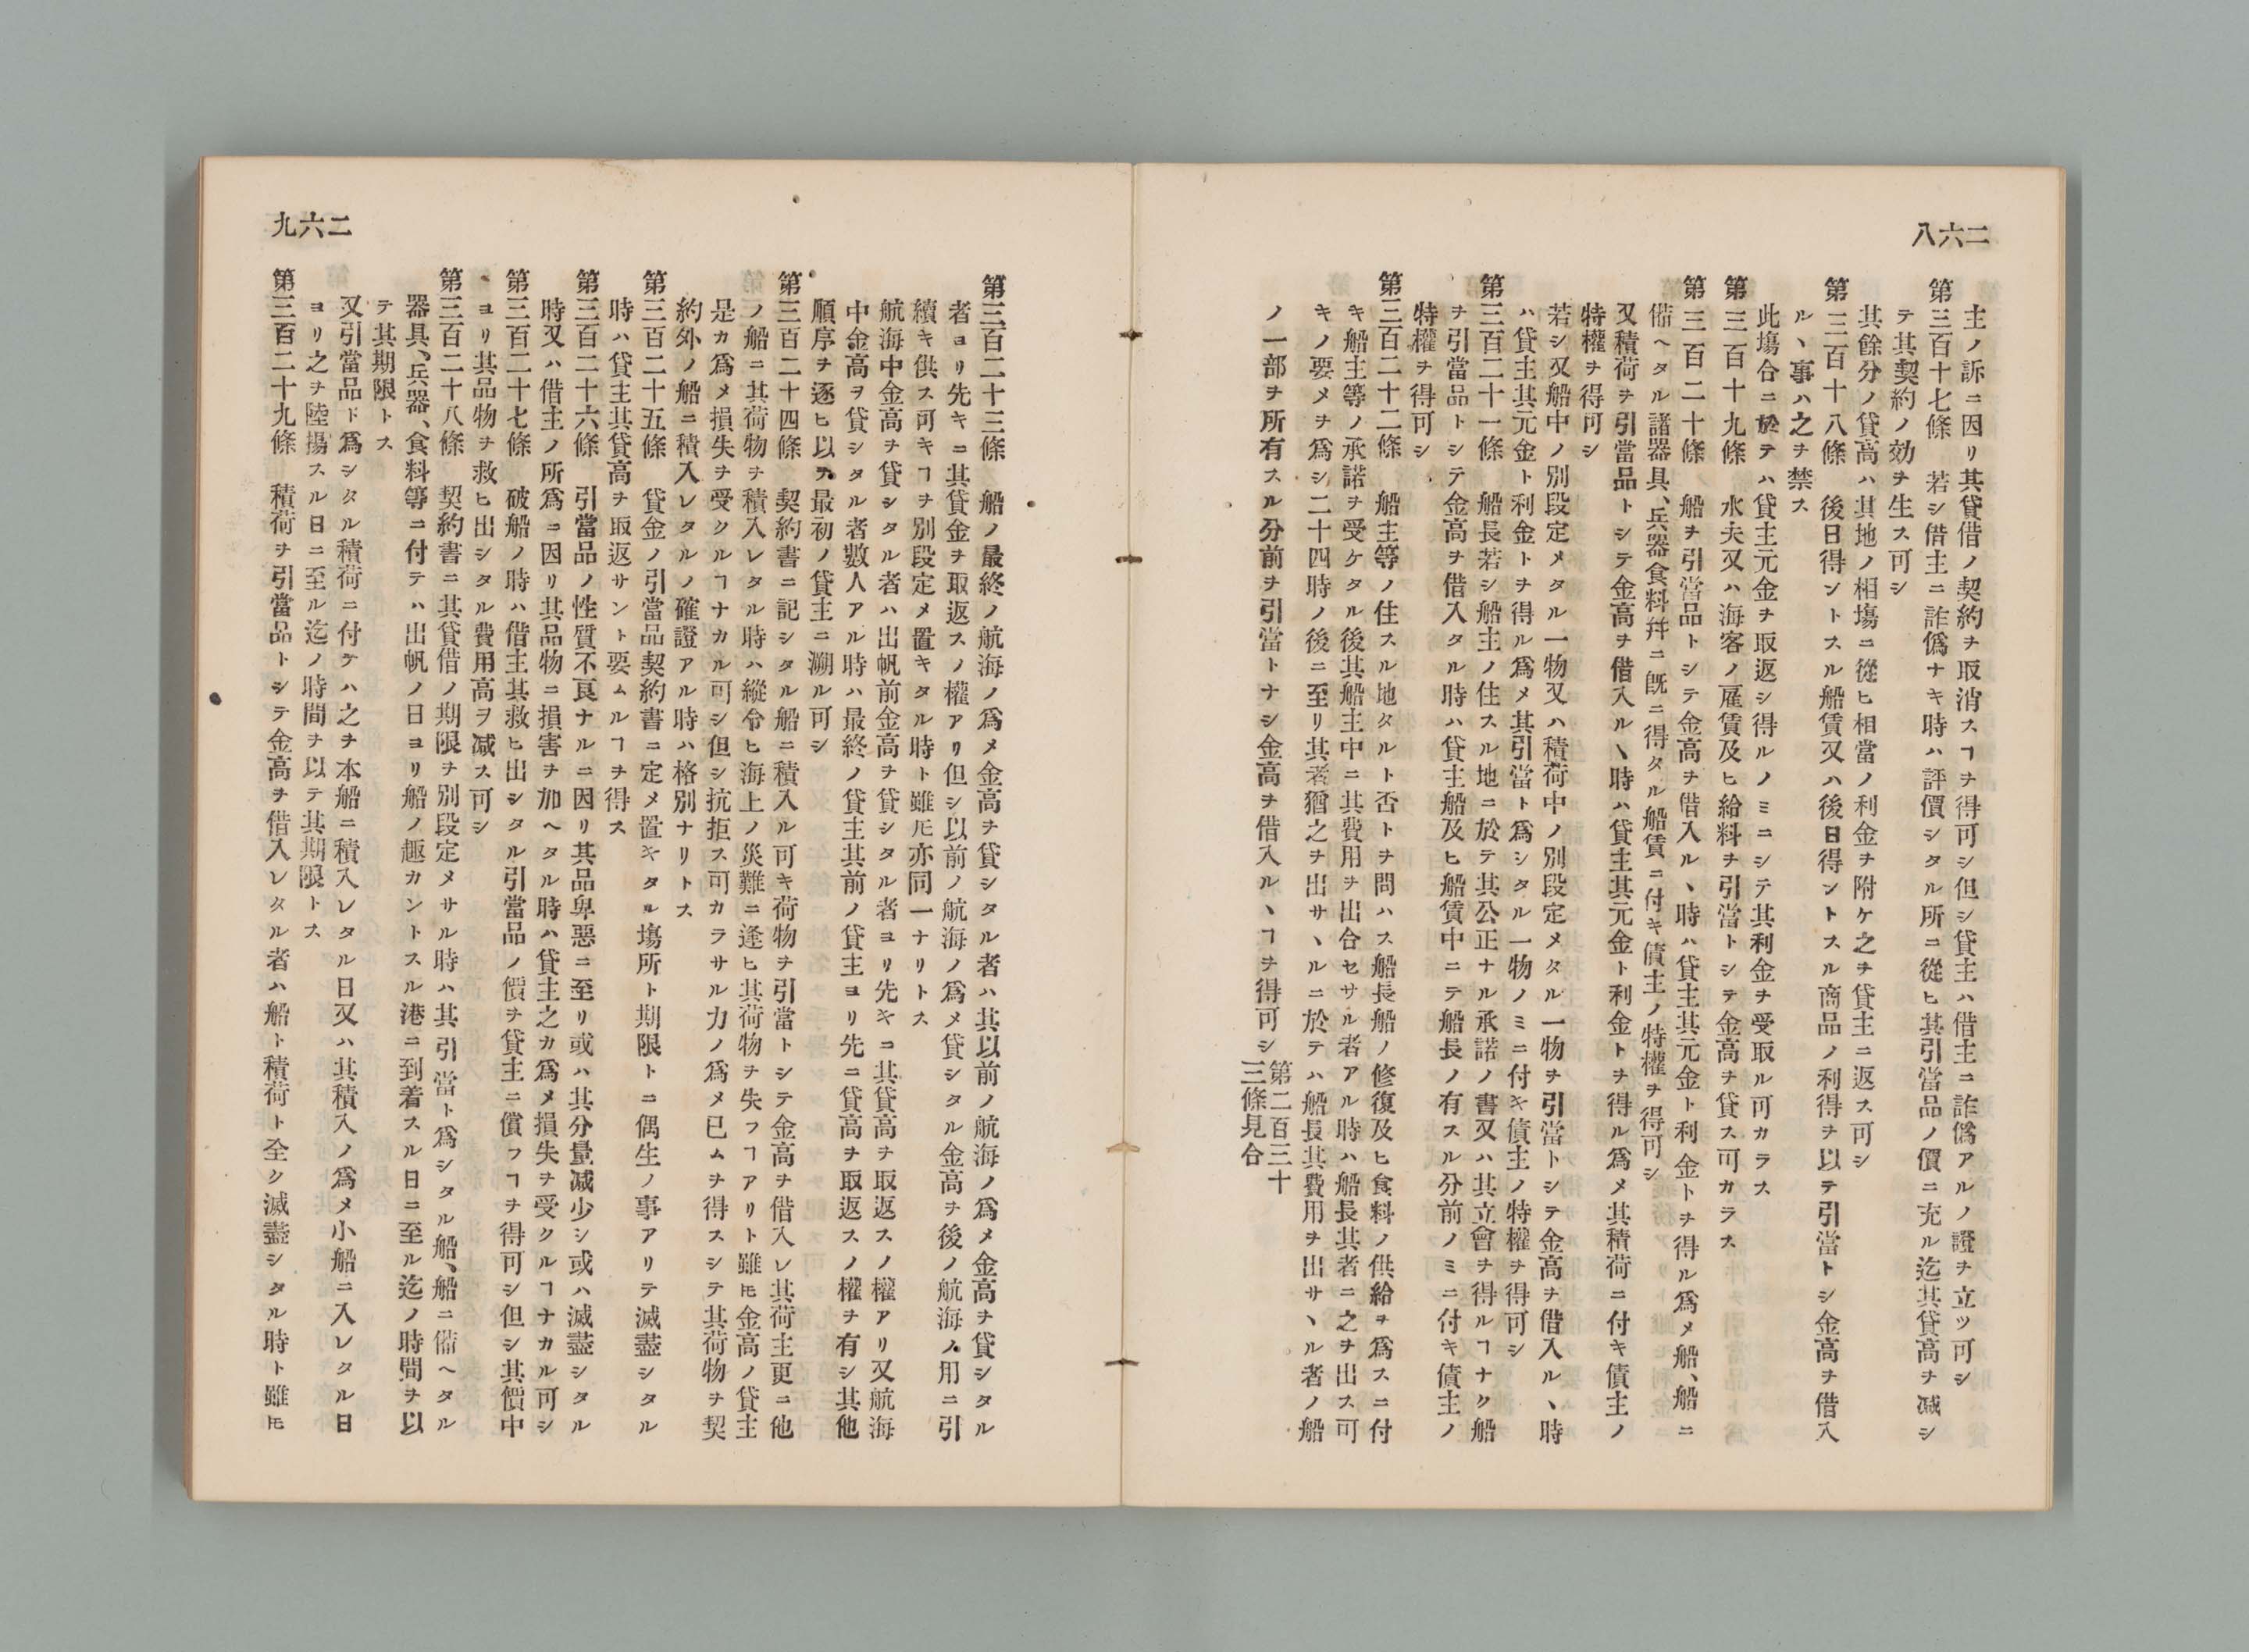 二六八
主ノ訴ニ因リ其貸借ノ契約ヲ取消スヿヲ得可シ但シ貸主ハ借主ニ詐僞アルノ證ヲ立ツ可シ
第三百十七條　若シ借主ニ詐僞ナキ時ハ評價シタル所ニ從ヒ其引當品ノ價ニ充ル迄其貸高ヲ減シ
テ其契約ノ効ヲ生ス可シ
其餘分ノ貸高ハ其地ノ相塲ニ從ヒ相當ノ利金ヲ附ケ之ヲ貸主ニ返ス可シ
第三百十八條　後日得ントスル船賃又ハ後日得ントスル商品ノ利得ヲ以テ引當トシ金高ヲ借入
ルヽ事ハ之ヲ禁ス
此塲合ニ於テハ貸主元金ヲ取返シ得ルノミニシテ其利金ヲ受取ル可カラス
第三百十九條　水夫又ハ海客ノ雇賃及ヒ給料ヲ引當トシテ金高ヲ貸ス可カラス
第三百二十條　船ヲ引當品トシテ金高ヲ借入ルヽ時ハ貸主其元金ト利金トヲ得ル爲メ船、船ニ
備ヘタル諸器具、兵器食料幷ニ既ニ得タル船賃ニ付キ債主ノ特權ヲ得可シ
又積荷ヲ引當品トシテ金高ヲ借入ルヽ時ハ貸主其元金ト利金トヲ得ル爲メ其積荷ニ付キ債主ノ
特權ヲ得可シ
若シ又船中ノ別段定メタル一物又ハ積荷中ノ別段定メタル一物ヲ引當トシテ金高ヲ借入ルヽ時
ハ貸主其元金ト利金トヲ得ル爲メ其引當ト爲シタル一物ノミニ付キ債主ノ特權ヲ得可シ
第三百二十一條　船長若シ船主ノ住スル地ニ於テ其公正ナル承諾ノ書又ハ其立會ヲ得ルヿナク船
ヲ引當品トシテ金高ヲ借入タル時ハ貸主船及ヒ船賃中ニテ船長ノ有スル分前ノミニ付キ債主ノ
特權ヲ得可シ
第三百二十二條　船主等ノ住スル地タルト否トヲ問ハス船長船ノ修復及ヒ食料ノ供給ヲ爲スニ付
キ船主等ノ承諾ヲ受ケタル後其船主中ニ其費用ヲ出合セサル者アル時ハ船長其者ニ之ヲ出ス可
キノ要メヲ爲シ二十四時ノ後ニ至リ其者猶之ヲ出サヽルニ於テハ船長其費用ヲ出サヽル者ノ船
ノ一部ヲ所有スル分前ヲ引當トナシ金高ヲ借入ルヽヿヲ得可シ第二百三十
三條見合
二六九
第三百二十三條　船ノ最終ノ航海ノ爲メ金高ヲ貸シタル者ハ其以前ノ航海ノ爲メ金高ヲ貸シタル
者ヨリ先キニ其貸金ヲ取返スノ權アリ但シ以前ノ航海ノ爲メ貸シタル金高ヲ後ノ航海ノ用ニ引
續キ供ス可キヿヲ別段定メ置キタル時ト雖𪜈亦同一ナリトス
航海中金高ヲ貸シタル者ハ出帆前金高ヲ貸シタル者ヨリ先キニ其貸高ヲ取返スノ權アリ又航海
中金高ヲ貸シタル者數人アル時ハ最終ノ貸主其前ノ貸主ヨリ先ニ貸高ヲ取返スノ權ヲ有シ其他
順序ヲ逐ヒ以テ最初ノ貸主ニ溯ル可シ
第三百二十四條　契約書ニ記シタル船ニ積入ル可キ荷物ヲ引當トシテ金高ヲ借入レ其荷主更ニ他
ノ船ニ其荷物ヲ積入レタル時ハ縱令ヒ海上ノ災難ニ逢ヒ其荷物ヲ失フヿアリト雖𪜈金高ノ貸主
是カ爲メ損失ヲ受クルヿナカル可シ但シ抗拒ス可カラサル力ノ爲メ已ムヲ得スシテ其荷物ヲ契
約外ノ船ニ積入レタルノ確證アル時ハ格別ナリトス
第三百二十五條　貸金ノ引當品契約書ニ定メ置キタル塲所ト期限トニ偶生ノ事アリテ滅盡シタル
時ハ貸主其貸高ヲ取返サント要ムルヿヲ得ス
第三百二十六條　引當品ノ性質不良ナルニ因リ其品卑惡ニ至リ或ハ其分量減少シ或ハ滅盡シタル
時又ハ借主ノ所爲ニ因リ其品物ニ損害ヲ加ヘタル時ハ貸主之カ爲メ損失ヲ受クルヿナカル可シ
第三百二十七條　破船ノ時ハ借主其救ヒ出シタル引當品ノ價ヲ貸主ニ償フヿヲ得可シ但シ其價中
ヨリ其品物ヲ救ヒ出シタル費用高ヲ減ス可シ
第三百二十八條　契約書ニ其貸借ノ期限ヲ別段定メサル時ハ其引當ト爲シタル船、船ニ備ヘタル
器具、兵器、食料等ニ付テハ出帆ノ日ヨリ船ノ趣カントスル港ニ到着スル日ニ至ル迄ノ時間ヲ以
テ其期限トス
又引當品ト爲シタル積荷ニ付テハ之ヲ本船ニ積入レタル日又ハ其積入ノ爲メ小船ニ入レタル日
ヨリ之ヲ陸揚スル日ニ至ル迄ノ時間ヲ以テ其期限トス
第三百二十九條　積荷ヲ引當品トシテ金高ヲ借入レタル者ハ船ト積荷ト全ク滅盡シタル時ト雖𪜈